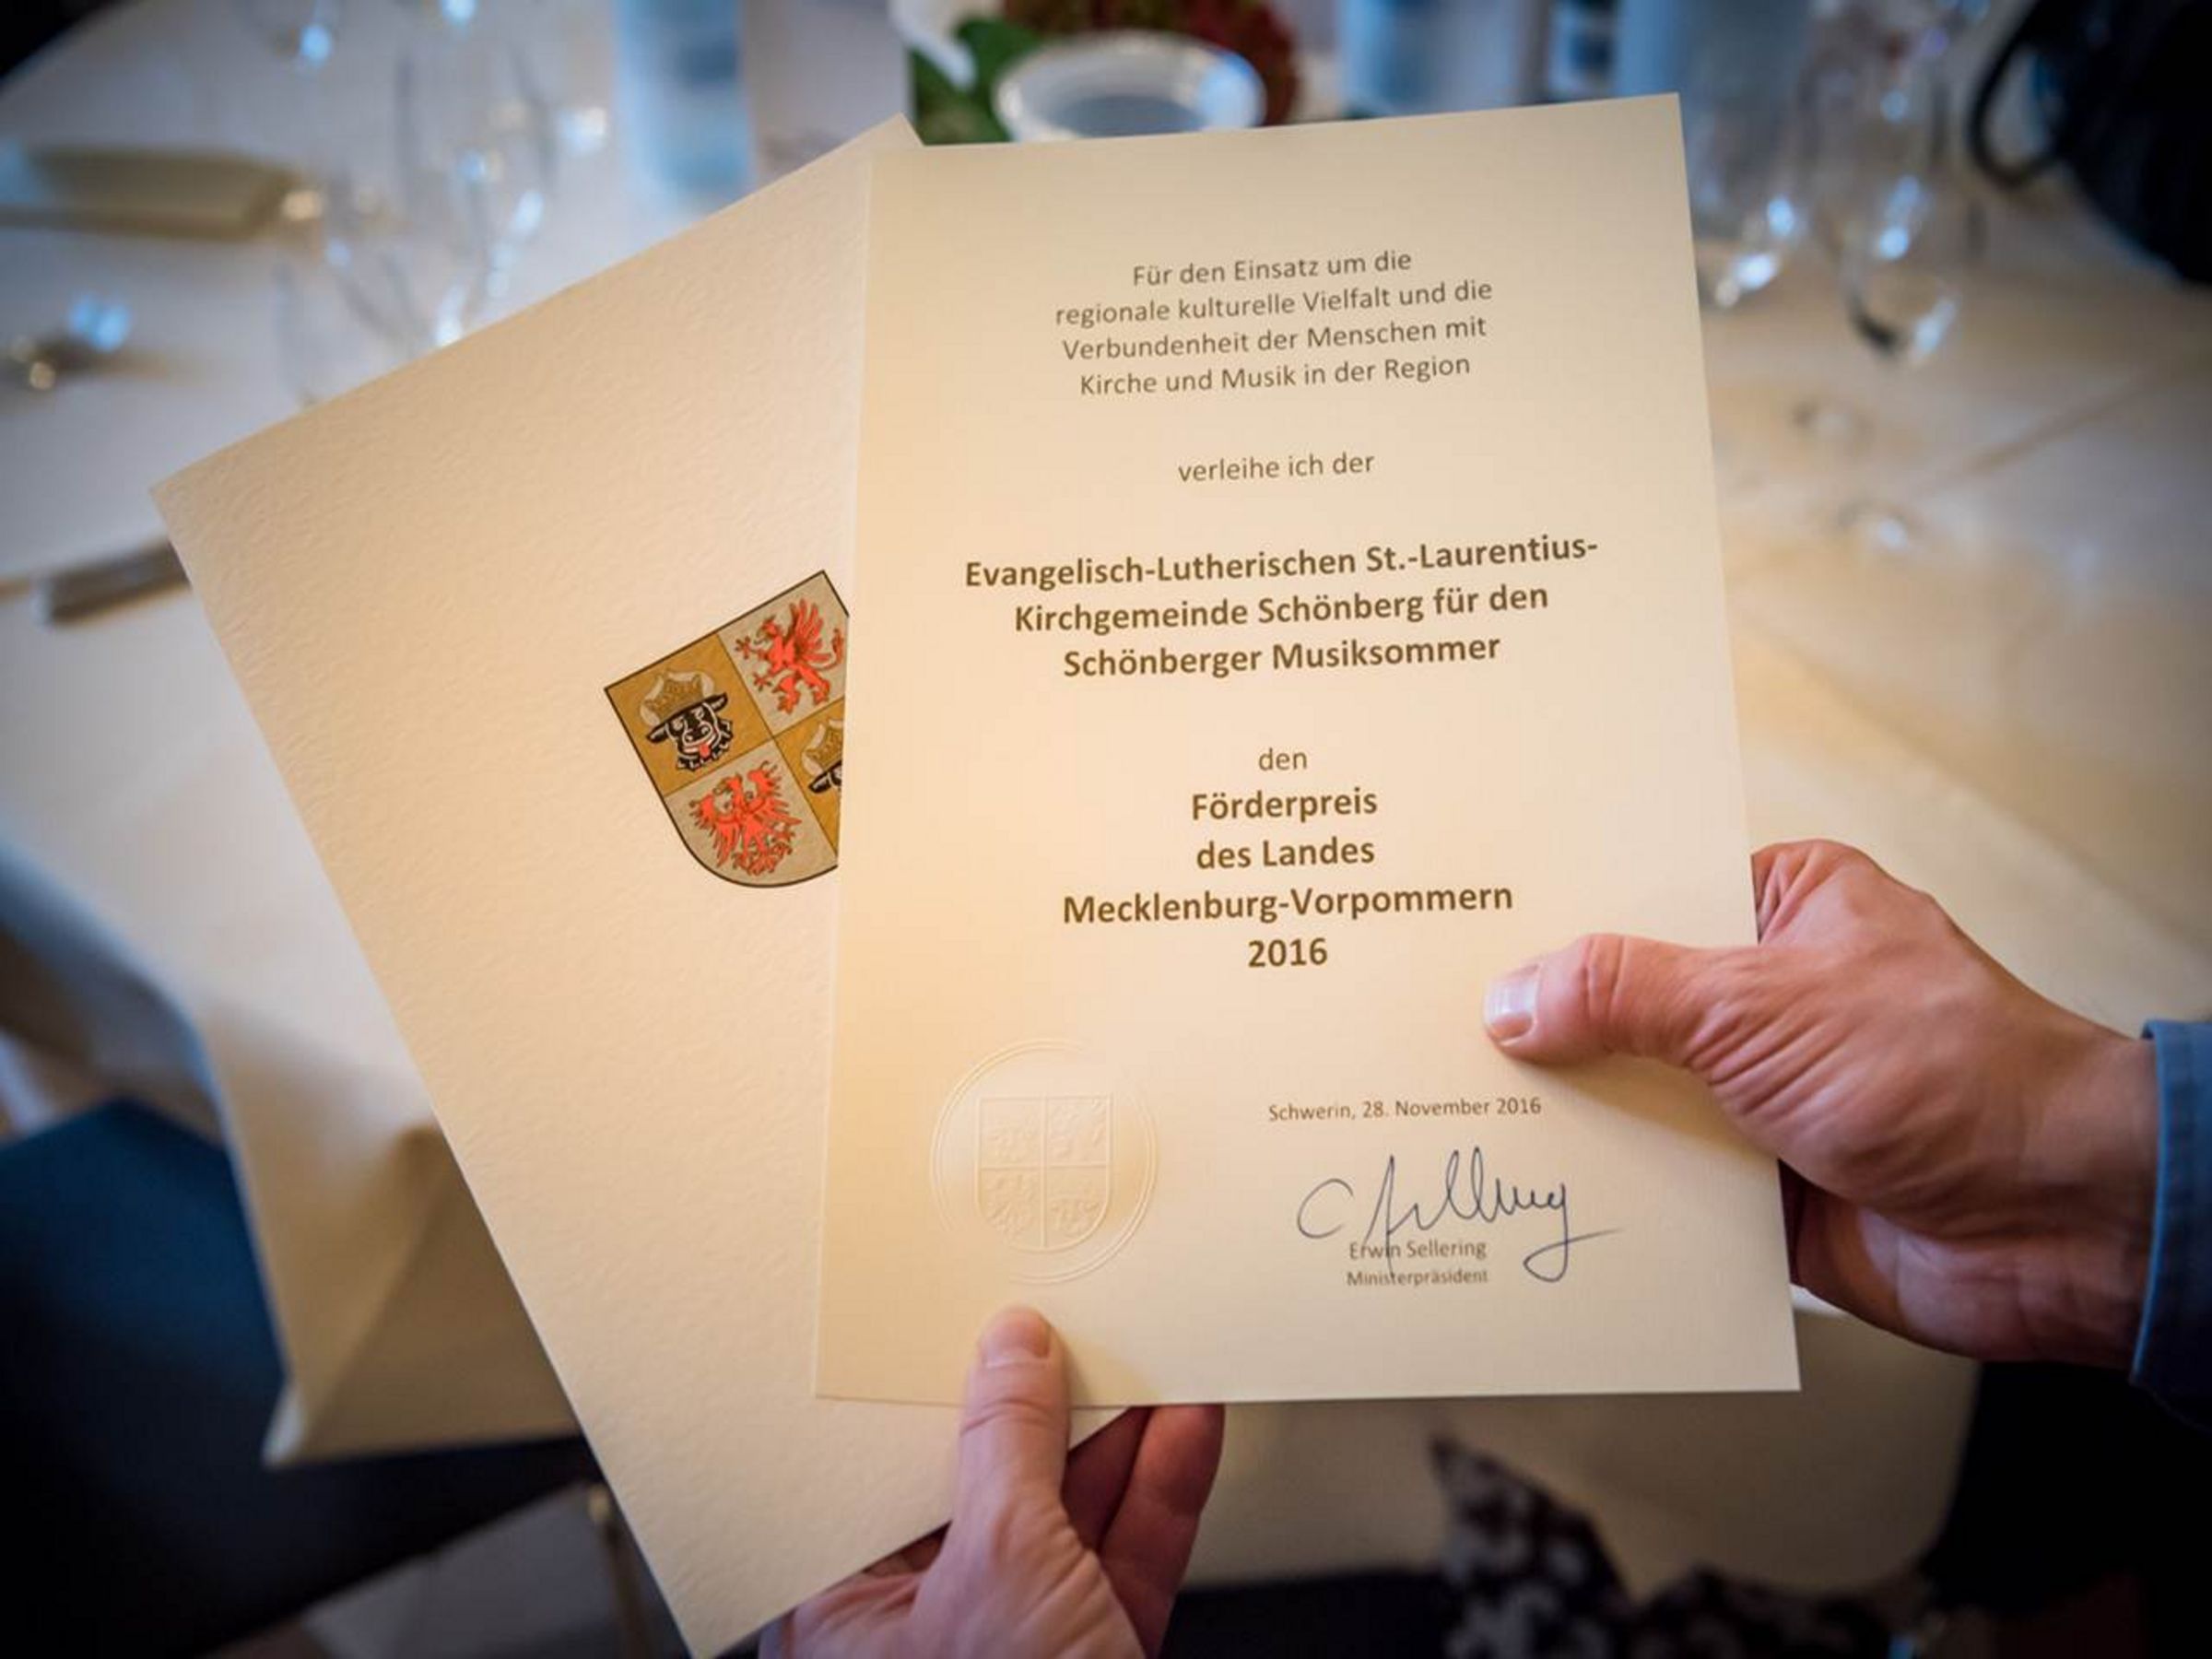 Für den Einsatz um die
regionale kulturelle Vielfalt und die
Verbundenheit der Menschen mit
Kirche und Musik in der Region
verleihe ich der
Evangelisch-Lutherischen St.-Laurentius-
Kirchgemeinde Schönberg für den
Schönberger Musiksommer
den
Förderpreis
des Landes
Mecklenburg-Vorpommern
2016
Schwerin, 28. November 2016
Erwin Sellering
Ministerpräsident